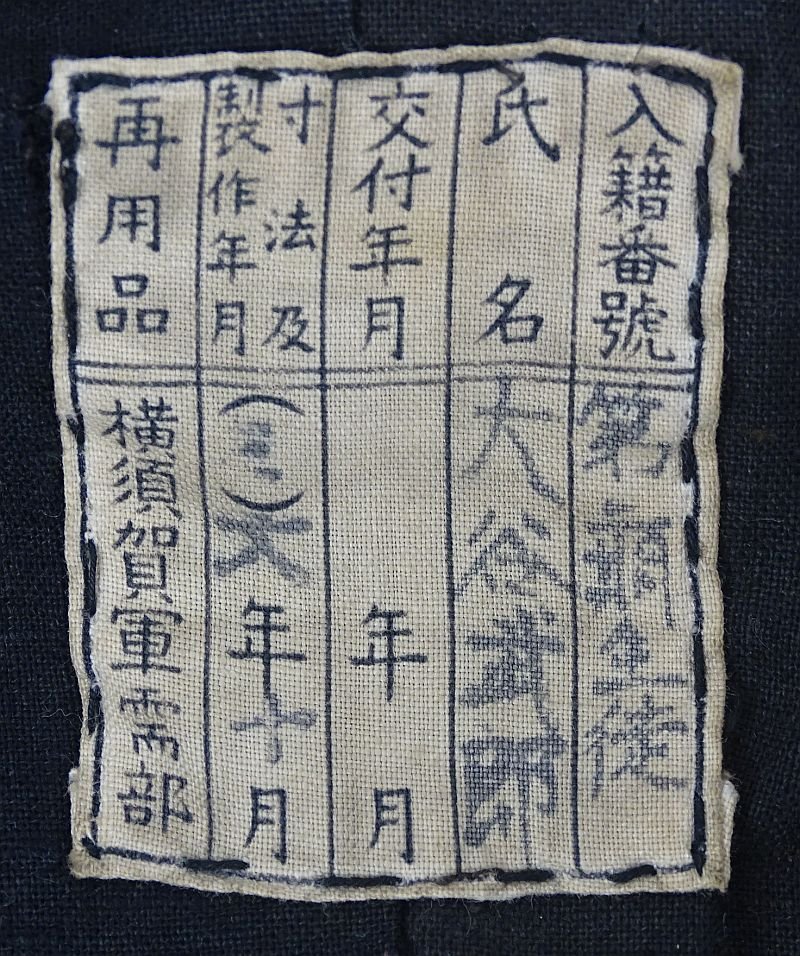 入籍番號
第生徒
氏名
大谷武郎
交付年月
年月
寸法及
製作年月
(三)年十月
再用品
横須賀軍需部